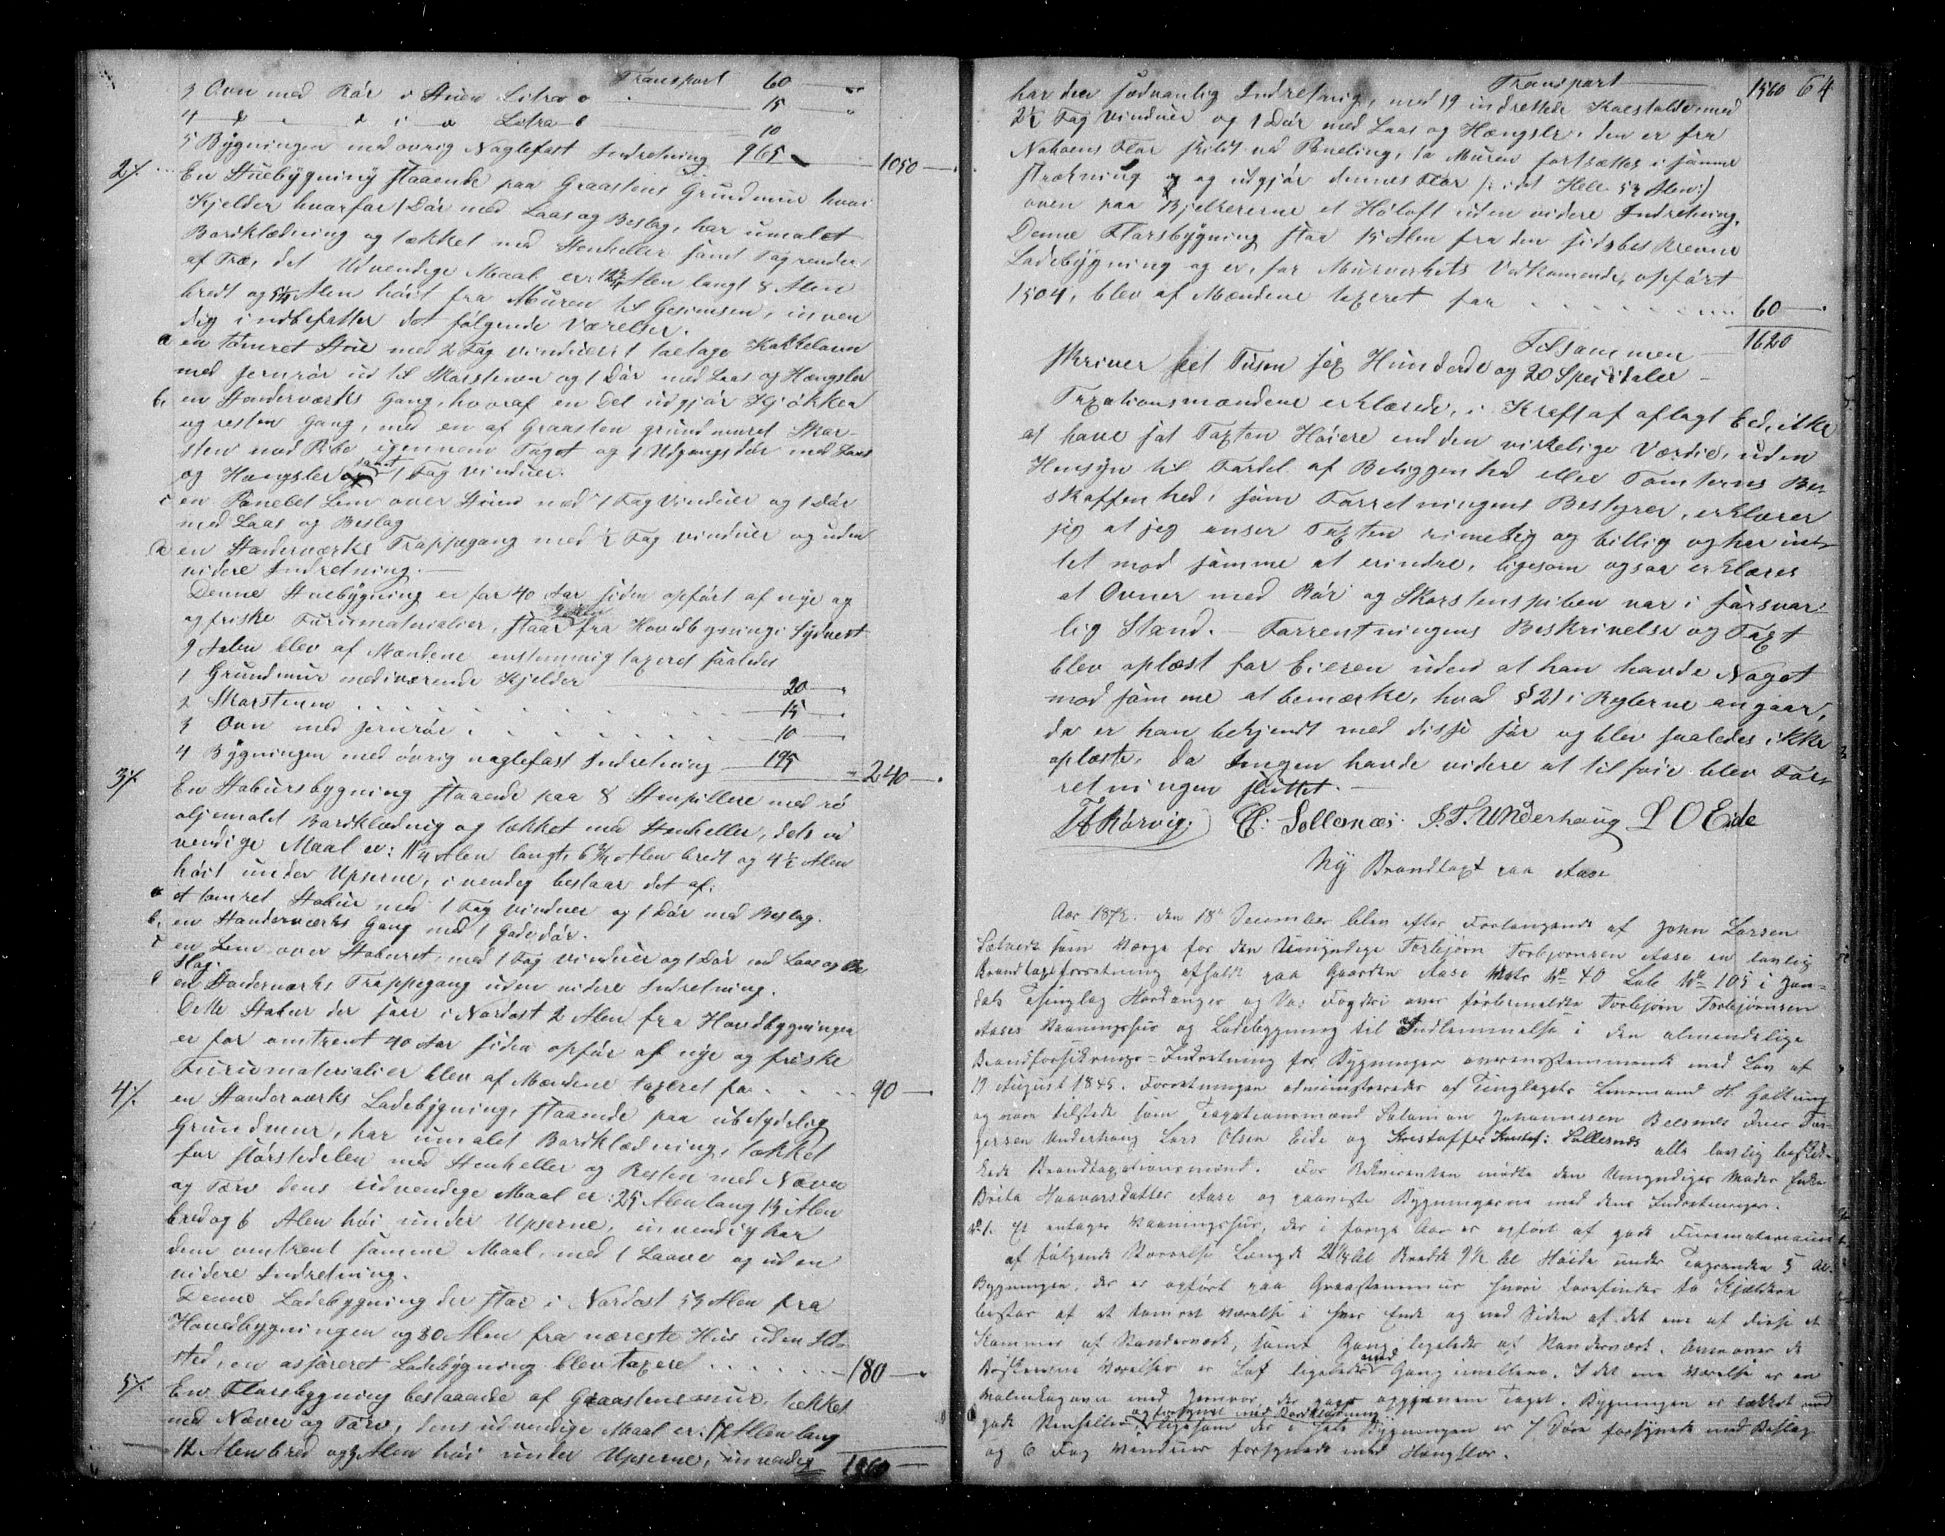 Transport 60 — "
3 Ovn med Rør i Stuen Litra a — 15 "
4 d d i d Litra b — 10
5 Bygningen med øvrig Naglefast Indretning 965 — 1050 —
2/. En Stuebygning staaende paa Graastens Grundmur hvori
Kjelder hvorfor 1 Dør med Laas og Beslag, har umalet
Bordklædning og tækket med Stenheller samt Tagrender
af Træ, det Udvendige Maal er: Alen langt 8 Alen
bredt og 5¼ Alen høit fra Muren til Gesimsen, inven
dig indbefatter det følgende Værelser.
a en tømret Stue med 2 Fag Vinduer 1 toetage Kakkelovn
med jernrør ud til Skorstenen og 1 Dør med Laas og Hængsler
b. en Standerværks Gang, hvoraf en Del udgjør Kjøkken
og resten Gang, med en af Graasten grundmuret Skor-
sten med Pibe igennem Taget og 1 Udgangsdør med Laas
og Hængsler samt 1 Fag Vinduer.
c en Panelet Lem over Stuen med 1 Fag Vinduer og 1 Dør
med Laas og Beslag
d en Standerværks Trappegang med ½ Fag Vinduer og uden
videre Indretning. —
Denne Stuebygning er for 40 Aar siden opført af nye og
og friske Furumaterialier, staar 9 Alen fra Hovedbygningi Sydvest
9 Alen blev af Mændene enstemmig taxeret saaledes
1 Grundmur mediværende Kjelder — 20 — "
2 Skorstenen . . . . . 15 — "
3 Ovn med jernrør . . . . . 10 —
4 Bygningen med øvrig naglefast Indretning — 195 " 240 —
3/. En Stabursbygning staaende paa 8 Stenpillere med rø
oljemalet Bordklædnig og tækket med Stenheller, dets ud
vendige Maal er: 11¼ Alen langt, 6¾ Alen bredt og 4½ Alen
høit under Upserne, ivendig bestaar det af:
a et tømret Stabur med 1 Fag Vinduer og 1 Dør med Beslag.
b. en Standerværks Gang med 1 Gadedør.
c en Lem over Staburet, med 1 Fag Vinduer og 1 Dør med Laas og Be
slag.
d en Standerværks Trappegang uden videre Indretning.
Dette Stabur der staar i Nordost 2 Alen fra Hovedbygningen
er for omtrent 40 Aar siden opfør af nye og friske
Furumaterialier blev af Mændene taxeret for . . . 90 —
4/. en Standerværks Ladebygning, staaende paa ubetydelig
Grundmur, har umalet Bordklædning, tækket
for størstedelen med Stenheller og Resten med Næver
og Tørv dens udvendige Maal er: 25 Alen lang 13 Alen
bred og 6 Alen høi under Upserne, invendig har
den omtrent samme Maal, med 1 Laave og uden
videre Indretning.
Denne Ladebygning der staar i Nordost 53 Alen fra
Hovedbygningen og 30 Alen fra næreste Hus uden Ild-
sted, en assureret Ladebygning blev taxered . . . . 180 —
5/. En Florsbygning bestaaende af Graastensmur, tækket
med Næver og Tørv, dens udvendige Maal er: 17 Alen lang
12 Alen bred og 3 Alen høi under Upserne, invendig 1560 —
Transport — 1560 64
har den sædvanlig Indretnig, med 19 indrettede Koestalde, med
2½ Fag Vinduer og 1 Dør med Laas og Hængsler, den er fra
Naboens Flor skildt ved Paneling, (a Muren fortsættes i samme
strækning og udgjør dennes Flor /: i det Hele 53 Alen:/
oven paa Bjelkererne et Høloft uden videre Indretning.
Denne Florsbygning staar 15 Alen fra den sidsbeskrevne
Ladebygning og er, for Murverkets Vedkomende, opført
1504, blev af Mændene taxeret for . . . . . . 60 — .
Tilsammen — 1620
skriver eet Tusen sex Hunderde og 20 Spesidaler —
Taxationsmændene erklærede, i Kraft af aflagt Eed, ikke
at have sat Taxten Høiere end den virkelige Værdie, uden
Hensyn til Fordel af Beliggenhed eller Tomternes Be-
skaffenhed, som Forretningens Bestyrer, erklærer
jeg at jeg anser Taxten rimelig og billig og har int
tet mod samme at erindre, ligesom ogsaa erklæres
at Ovner med Rør og Skorstenspiben var i forsvar-
lig Stand. — Forrentningens Beskrivelse og Taxt
blev oplæst for Eieren uden at han havde Noget
mod samme at bemærke, hvad § 21 i Reglerne angaar,
da er han bekjendt med disse før og blev saaledes ikke
oplæste. Da Ingen havde videre at tilføie blev For-
retningen sluttet. —
Sollesnæs. I. T. Underhaug L O Eide
Ny Brandtaxt paa Aase
Aar 1872. den 18de December blev efter Forlangende af John Larsen
som Værge for den Umyndige Torbjørn Torbjørnsen Aase en lovlig
Brandtaxtforretning afholdt paa Gaarden Aase Matr No 40 Løbe No 105 i Jon-
dals Tinglag Hardanger og Vos Fogderi over forbemeldte Torbjørn Torbjørnsen
Aases Vaaningshus og Ladebygning til Indlemmelse i den almindelige
Brandforsikrings-Indretning for Bygninger overensstemmende med Lov af
19 August 1845. Forretningen administreredes af Tinglagets Lensmand H. Galtung
og vare tilstede som Taxationsmænd Salamon Johannesen Belsnes Iver Tor-
gersen Underhaug Lars Olsen Eide og Kristoffer Kristof: Sollesnæs alle lovlig beskik-
kede Brandtaxationsmænd. For Rekvirenten mødte den Umyndiges Moder Enke
Brita Haavarsdatter Aase og paaviste Bygningerne med dens Indretninger.
No 1. Et entages Vaaningshus, der i forige Aar er opført af gode Furumaterialier
af følgende Størrelse Længde 21½ Al Bredde 9½ Al Høide under Tagrenden 5 Al.
Bygningen, der er opført paa Graastensmur hvori forefindes to Kjældere
bestaar af et tømret Værelse i hver Ende og ved Siden af det ene af disse et
Kammer af Standerværk, samt Gang ligeledes af Standerværk. Ovenover de
Beskrevne Værelser er Loft ligeledes med Gang imellem. I det ene Værelse er en
Malmkagovn med Jernrør der gaar opgjenem Taget. Bygningen er tækket med
gode Stenheller og forsynet med Bordklædning ligesom der i hele Bygningen er 7 Døre forsynede med Beslag
og 6 Fag Vinduer forsynede med Hængsler.